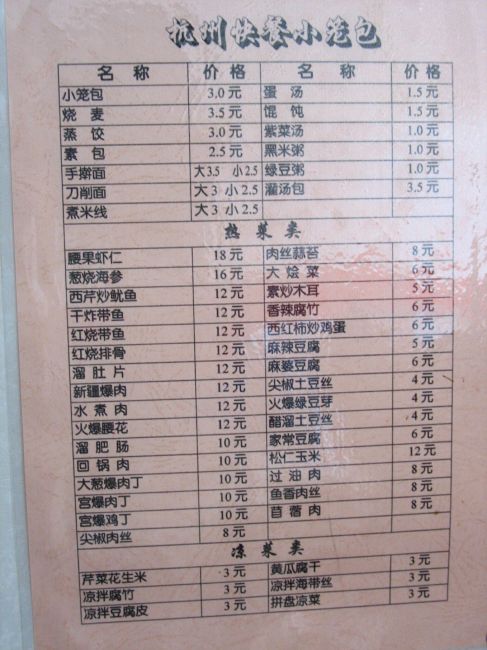 杭州快餐小笼包
名 称 价 格 名 称 价 格
小笼包 3.0元 蛋 汤 1.5元
烧 麦 3.5元 馄 饨 1.5元
蒸 饺 3.0元 紫菜汤 1.0元
素 包 2.5元 黑米粥 1.0元
手擀面 大3.5 小2.5 绿豆粥 1.0元
刀削面 大3 小2.5 灌汤包 3.5元
煮米线 大3 小2.5
热 菜 类
腰果虾仁 18元 肉丝蒜苔 8元
葱烧海参 16元 大 烩 菜 6元
西芹炒鱿鱼 12元 素炒木耳 5元
干炸带鱼 12元 香辣腐竹 6元
红烧带鱼 12元 西红柿炒鸡蛋 6元
红烧排骨 12元 麻辣豆腐 5元
溜 肚 片 12元 麻婆豆腐 6元
新疆爆肉 12元 尖椒土豆丝 4元
水 煮 肉 12元 火爆绿豆芽 4元
火爆腰花 12元 醋溜土豆丝 4元
溜 肥 肠 10元 家常豆腐 6元
回 锅 肉 10元 松仁玉米 12元
大葱爆肉丁 10元 过 油 肉 8元
宫爆肉丁 10元 鱼香肉丝 8元
宫爆鸡丁 10元 苜 蓿 肉 8元
尖椒肉丝 8元
凉 菜 类
芹菜花生米 3元 黄瓜腐干 3元
凉拌腐竹 3元 凉拌海带丝 3元
凉拌豆腐皮 3元 拼盘凉菜 3元